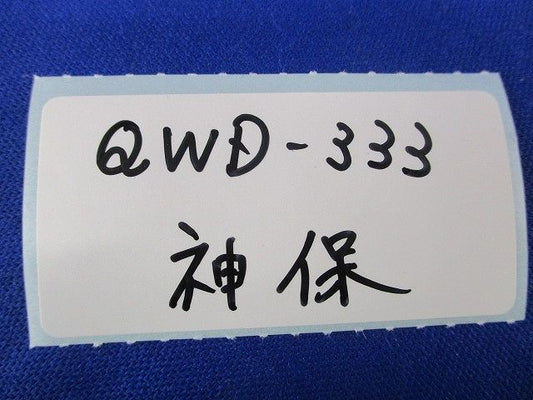 QWD-333
神保